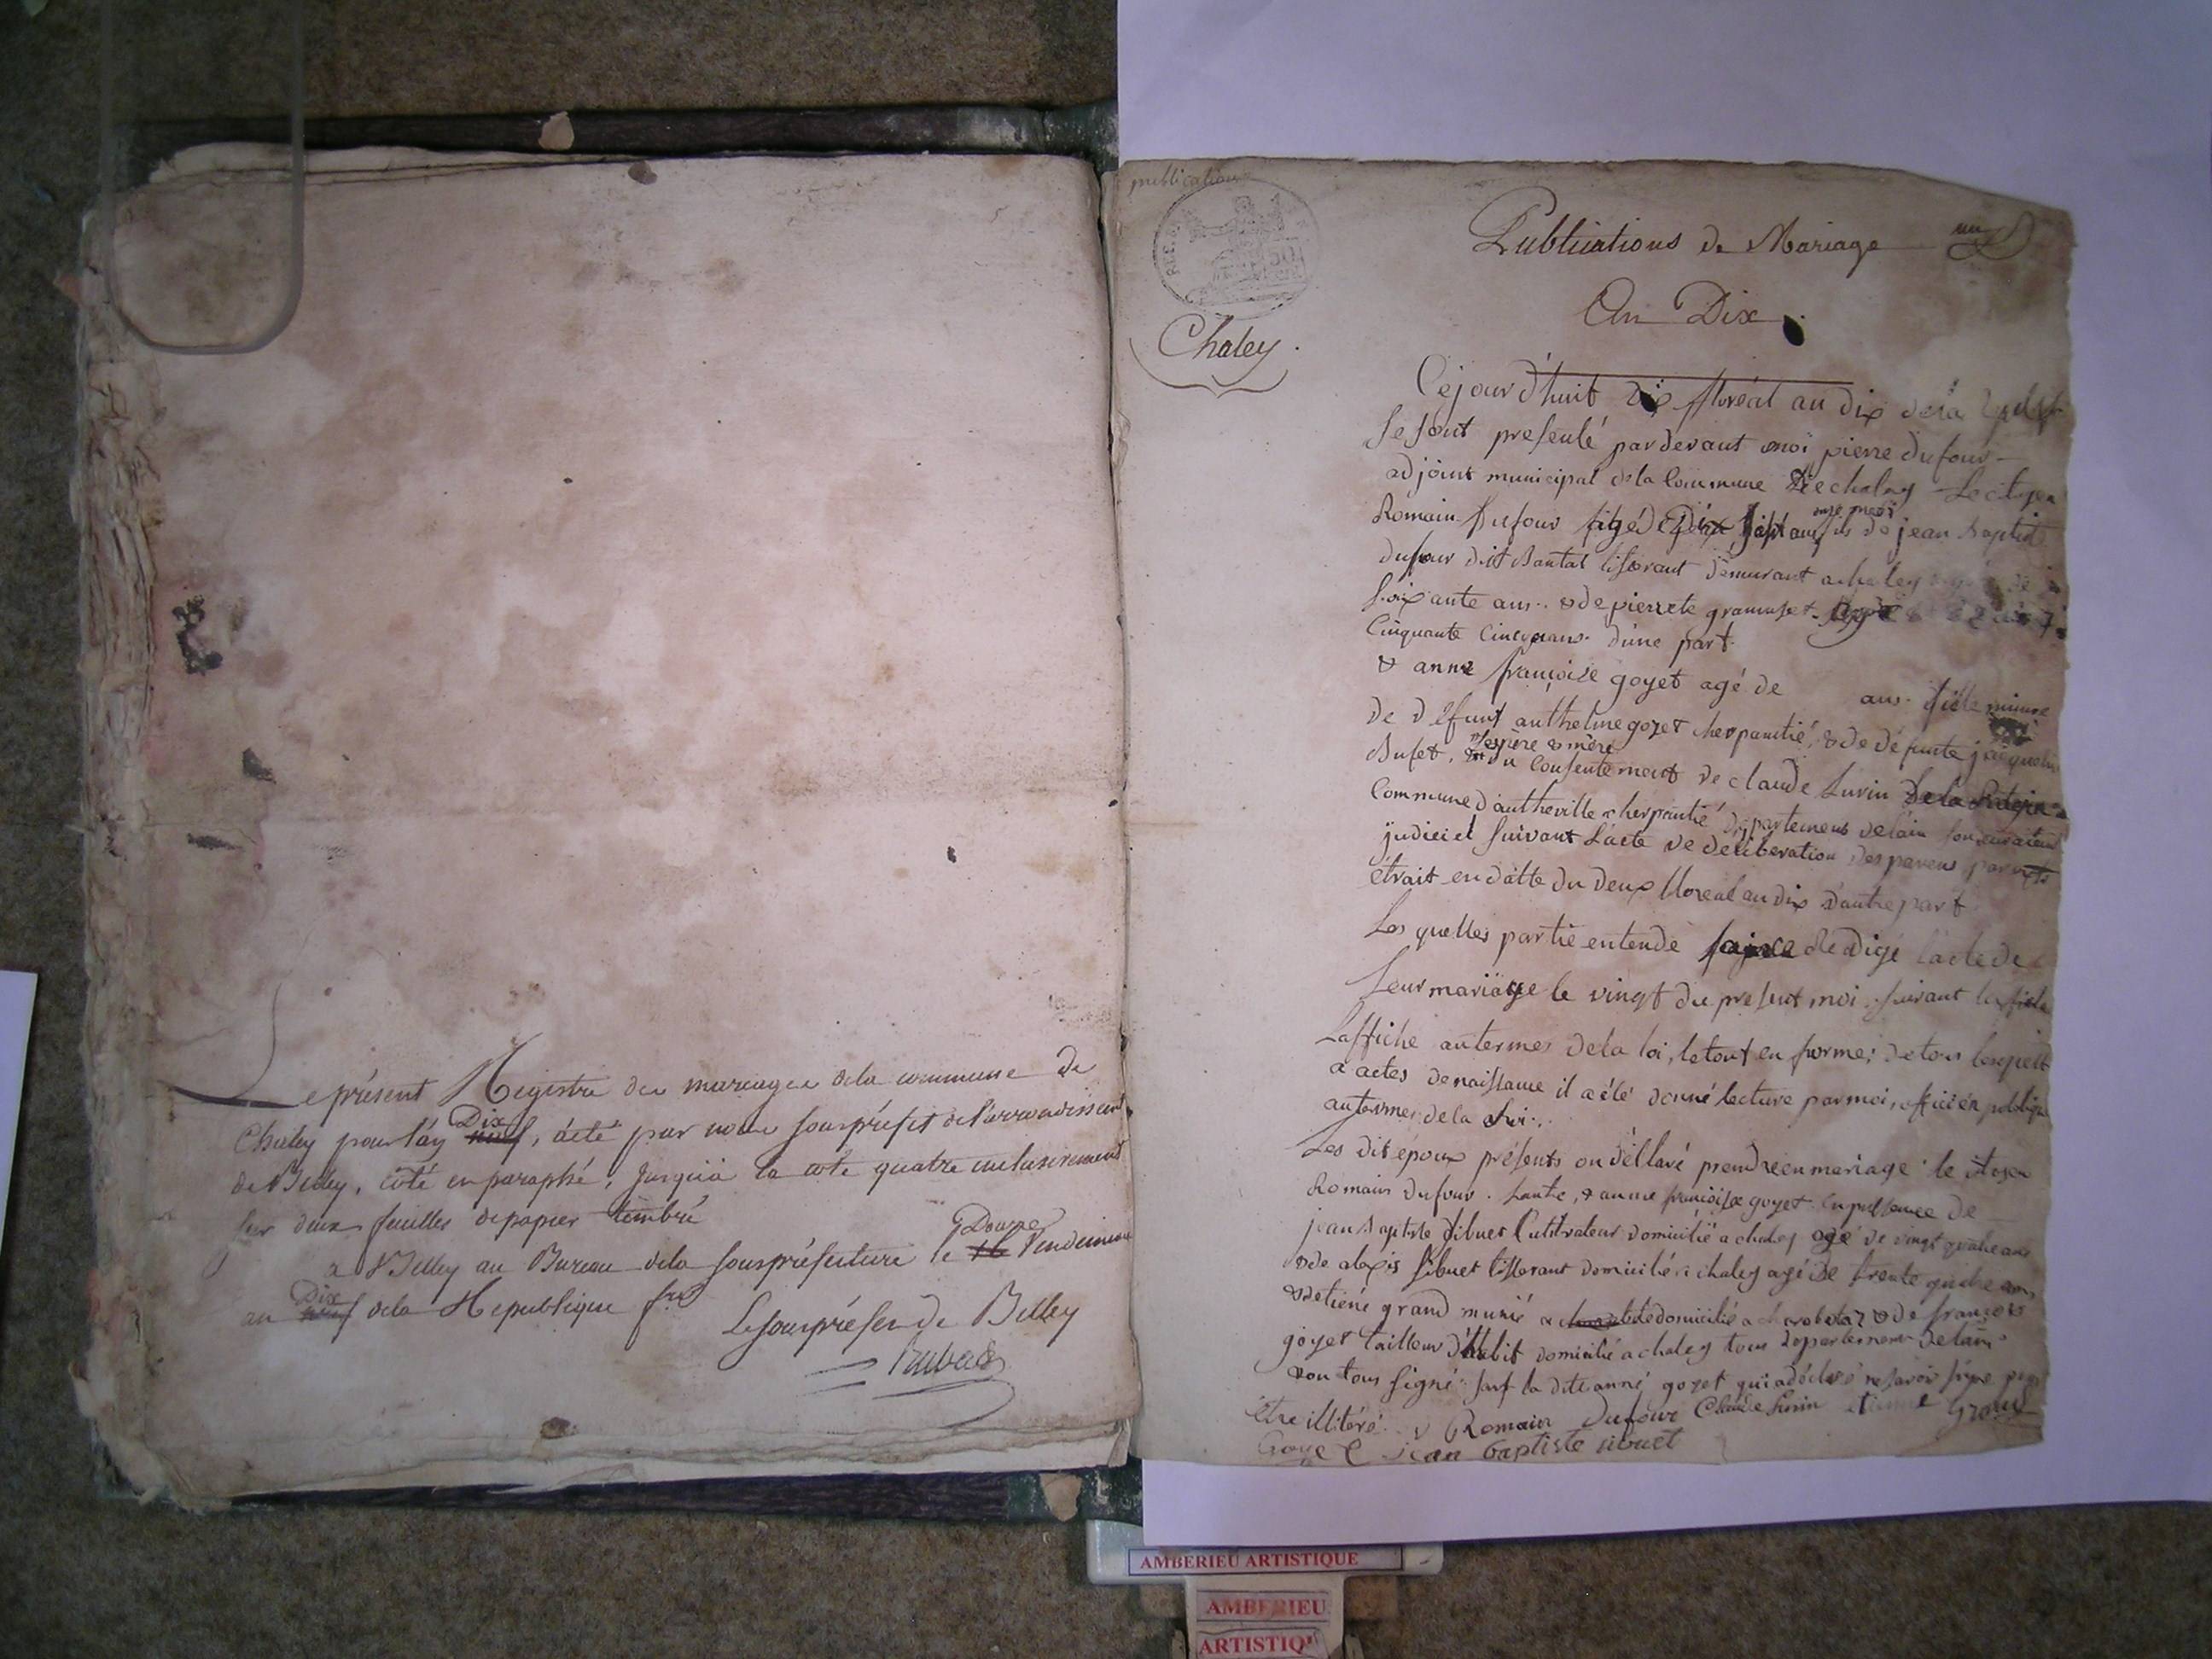 Le présent Registre des mariages dela commune de
Chaley pour l'an Dix neuf, a été par nous souspréfet de l'arrondissement
de Belley, coté en paraphé, jusqu'à la cote quatre inclusivement
sur deux feuilles depapier timbré
a Belley au Bureau dela souspréfecture le Douze Vendemiaire
an Dix neuf dela Republique frse
Le souspréfet de Belley
publication
Publications de Mariage un
An Dix.
Chaley.
Cejourd'huit dix floréal an dix dela
se sont presenté pardevant moi pierre dufour
adjoint municipal dela Commune de chaley Le citoyen
onze moi
Romain Dufour agé de Dix sept ans fils de jean baptiste
dufour dit Bantat tisserant demurant a chaley
soixante ans. & de pierrete gramuset
Cinquante cinq ans d'une part
& anne françoise goyet agé de ans. fille mineure
de défunt anthelme goyet cherpantié, & de défunte jacqueline
ses père & mère
Bufet, du Consentement de claude Lurin
Commune d'antheville cherpantié département delain son curateur
judiciel suivant L'acte de déliberation des parens par
étrait en datte du deux floreal an dix d'autre part
Les quelles partie entende faire Redige l'acte de
Leur mariage le vingt du present moi suivant
L'affiche au termes dela loi, le tout en forme; de tous lesquels
a actes denaissance il a été donné lecture par moi, officier publique
au termes de la loi.
Les dit époux présents on déllaré prendre en mariage le citoyen
Romain dufour. Lautre, & anne françoise goyet en présence de
jean baptiste sibuet Cultivateur domicilié a chaley agé de vingt quatre ans
& de alexis sibuet tisserant domicilié a chaley agé de trente quatre ans
& detiené grand munié a domicilié a charabotaz & de françois
goyet tailleur d'habit domicilié a chaley tous département delain
& on tous signé sauf la dite anne goyet qui a déclaré ne savoir signe pour
être illitéré. Romain Dufour Claude Lurin etienne Grand
Goyet jean baptiste sibuet
AMBERIEU ARTISTIQUE
AMBERIEU
ARTISTIQU